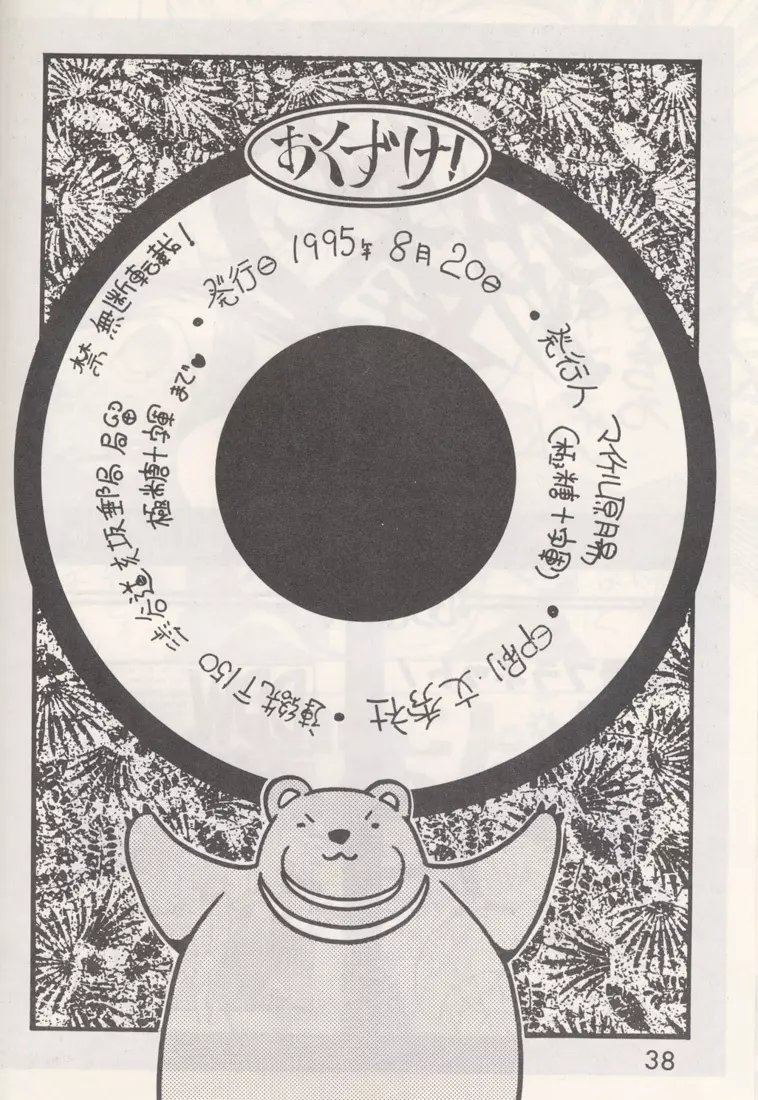 おくづけ!
・発行日 1995年8月20日
・発行人 マイケル原腸
(極糖十字軍)
・印刷・文秀社
・連絡先 〒150
渋谷道玄坂郵局局留
極糖十字軍 まで
禁 無断転載!
38